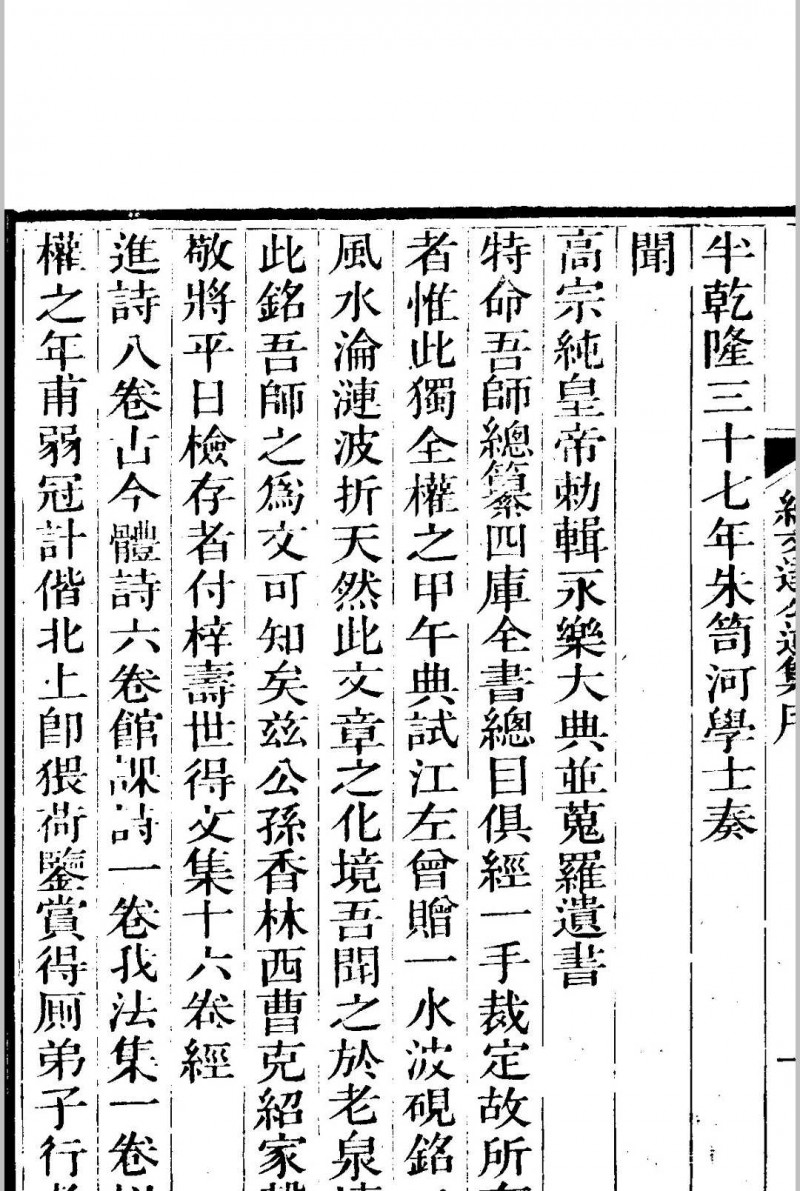 半乾隆三十七年朱笥河學士奏
聞
高宗純皇帝勅輯永樂大典並蒐羅遺書
特命吾師總纂四庫全書總目俱經一手裁定故所
者惟此獨全權之甲午典試江左曾贈一水波硯銘
風水淪漣波折天然此文章之化境吾聞之於老泉
此銘吾師之爲文可知矣兹公孫香林西曹克紹家
敬將平日檢存者付梓壽世得文集十六卷經
進詩八卷古今體詩六卷館課詩一卷我法集一卷
權之年甫弱冠計偕北上卽猥荷鑒賞得厠弟子行